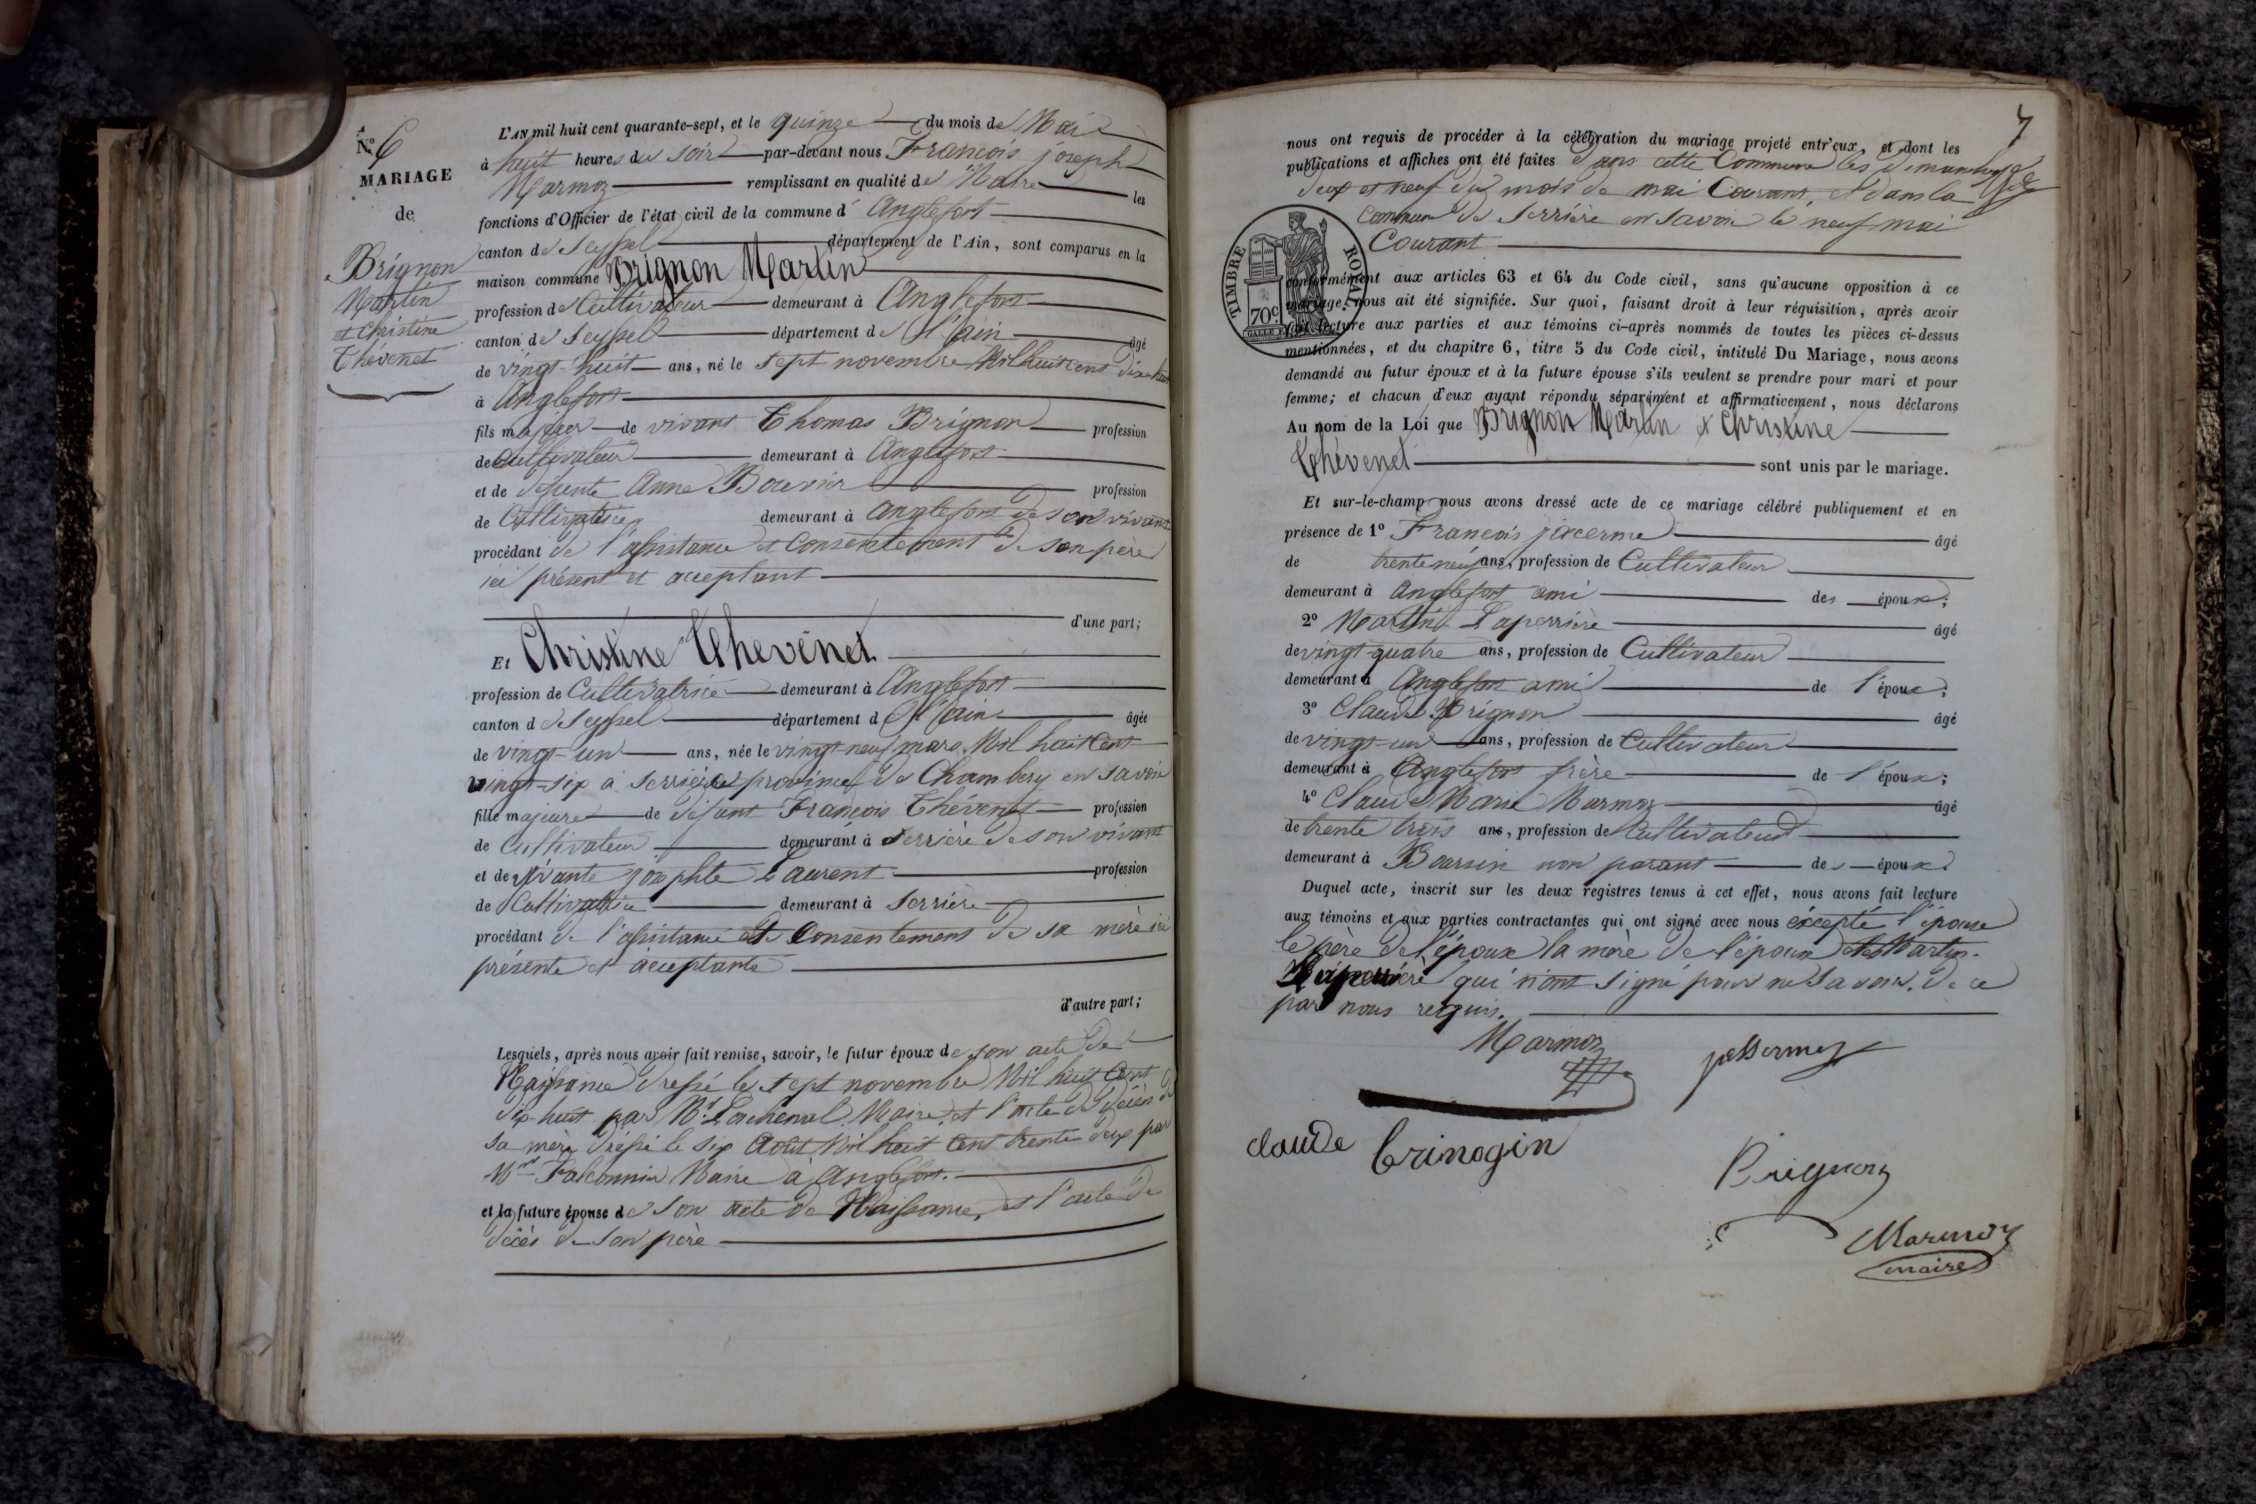 N.º 6
MARIAGE
de
Brignon
Martin
et Christine
Thévenet
L'AN mil huit cent quarante-sept, et le quinze du mois de Mai
à huit heures du soir par-devant nous François joseph
Marmoz remplissant en qualité de Maire les
fonctions d'Officier de l'état civil de la commune d' Anglefort
canton de Seyssel département de l'Ain, sont comparus en la
maison commune Brignon Martin
profession de Cultivateur demeurant à Anglefort
canton de Seyssel département de l'ain âgé
de vingt-huit ans, né le sept novembre Mil huit cent dix-huit
à Anglefort
fils majeur de vivant Thomas Brignon profession
de Cultivateur demeurant à Anglefort
et de défunte Anne Bouvier profession
de Cultivatrice demeurant à Anglefort de son vivant
procédant de l'assistance et consentement de son père
ici présent et acceptant
d'une part;
Et Christine Thévenet
profession de Cultivatrice demeurant à Anglefort
canton de Seyssel département d l'ain âgée
de vingt-un ans, née le vingt-neuf mars Mil huit cent
vingt-six à Serrière province de Chambery en savoie
fille majeure de défunt François Thévenet profession
de Cultivateur demeurant à Serrière de son vivant
et de vivante josephte Laurent profession
de Cultivatrice demeurant à Serrière
procédant de l'assistance et consentement de sa mère ici
présente et acceptante
d'autre part;
Lesquels, après nous avoir fait remise, savoir, le futur époux de son acte de
Naissance dressé le sept novembre Mil huit Cent
dix huit par Mr Lachenal Maire, et l'acte de décès de
sa mère dressé le six Août Mil huit Cent trente deux par
Mr Falconnier Maire à Anglefort.
et la future épouse de son acte de Naissance, et l'acte de
décès de son père
7
nous ont requis de procéder à la célébration du mariage projeté entr'eux, et dont les
publications et affiches ont été faites dans cette Commune les dimanches
deux et neuf du mois de mai Courant, et dans la
Commune de Serrière en Savoie le neuf mai
Courant
TIMBRE ROYAL
70 c.
conformément aux articles 63 et 64 du Code civil, sans qu'aucune opposition à ce
mariage, nous ait été signifiée. Sur quoi, faisant droit à leur réquisition, après avoir
fait lecture aux parties et aux témoins ci-après nommés de toutes les pièces ci-dessus
mentionnées, et du chapitre 6, titre 5 du Code civil, intitulé Du Mariage, nous avons
demandé au futur époux et à la future épouse s'ils veulent se prendre pour mari et pour
femme; et chacun d'eux ayant répondu séparément et affirmativement, nous déclarons
Au nom de la Loi que Brignon Martin et Christine
Thévenet sont unis par le mariage.
Et sur-le-champ nous avons dressé acte de ce mariage célébré publiquement et en
présence de 1º François jixerme âgé
de trente neuf ans, profession de Cultivateur
demeurant à Anglefort ami des époux;
2º Martin Laperrière âgé
de vingt-quatre ans, profession de Cultivateur
demeurant à Anglefort ami de l'époux;
3º Claude Brignon âgé
de vingt-un ans, profession de Cultivateur
demeurant à Anglefort frère de l'époux;
4º Claude Marie Marmoz âgé
de trente trois ans, profession de Cultivateur
demeurant à Boursin non parant des époux
Duquel acte, inscrit sur les deux registres tenus à cet effet, nous avons fait lecture
aux témoins et aux parties contractantes qui ont signé avec nous éxcepté l'épouse
le père de l'époux la mère de l'épouse et Martin
Laperrière qui n'ont signé pour ne savoir. De ce
par nous requis.
Marmoz
Claude brinogin
Brignon
Marmoz
maire